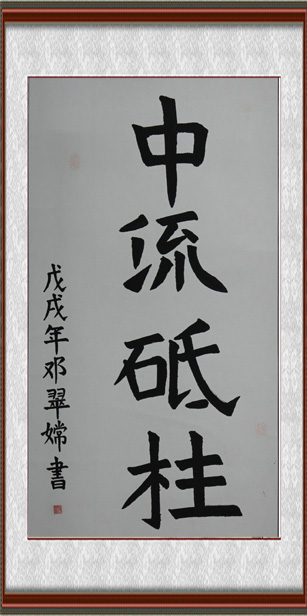 中流砥柱
戊戌年邓翠嫦書